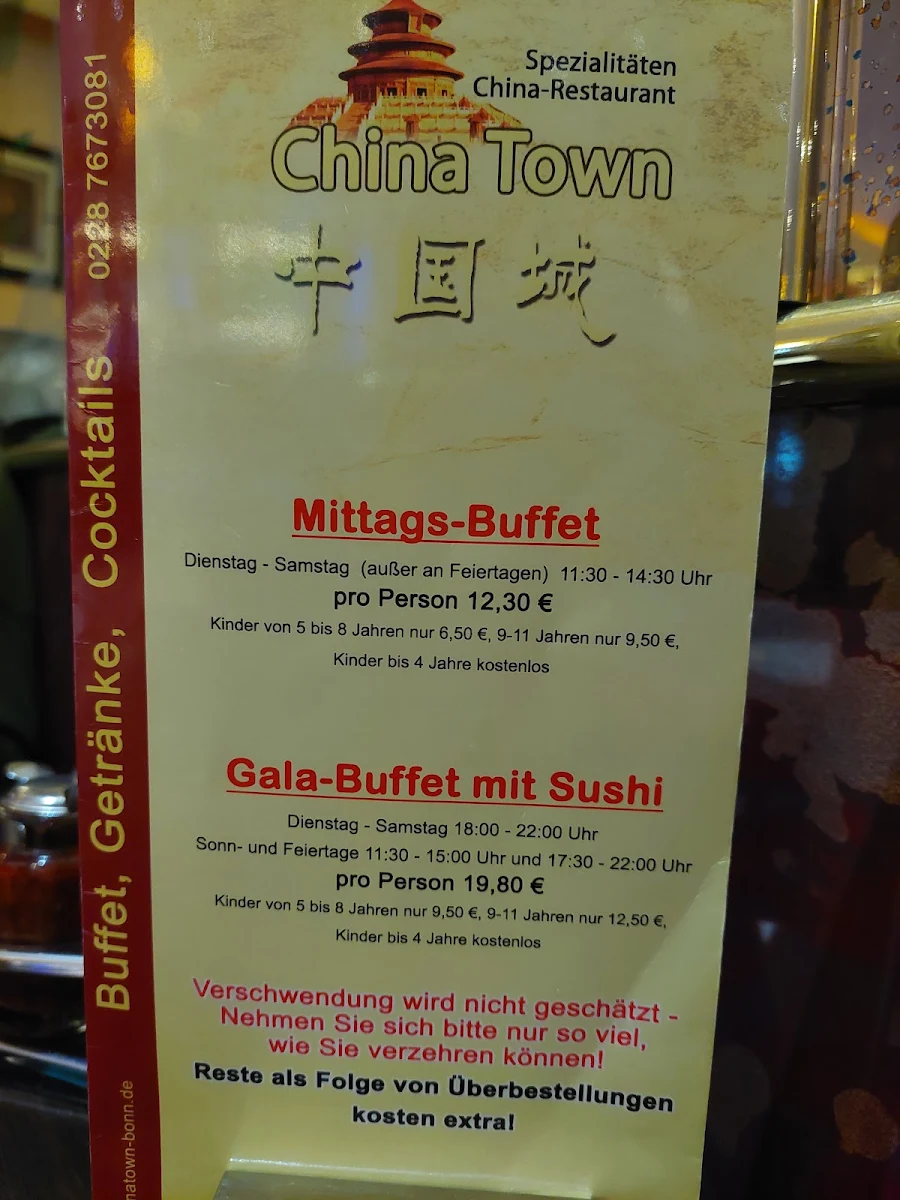 Spezialitäten
China-Restaurant
China Town
中国城
Mittags-Buffet
Dienstag - Samstag (außer an Feiertagen) 11:30 - 14:30 Uhr
pro Person 12,30 €
Kinder von 5 bis 8 Jahren nur 6,50 €, 9-11 Jahren nur 9,50 €,
Kinder bis 4 Jahre kostenlos
Gala-Buffet mit Sushi
Dienstag - Samstag 18:00 - 22:00 Uhr
Sonn- und Feiertage 11:30 - 15:00 Uhr und 17:30 - 22:00 Uhr
pro Person 19,80 €
Kinder von 5 bis 8 Jahren nur 9,50 €, 9-11 Jahren nur 12,50 €,
Kinder bis 4 Jahre kostenlos
Verschwendung wird nicht geschätzt -
Nehmen Sie sich bitte nur so viel,
wie Sie verzehren können!
Reste als Folge von Überbestellungen
kosten extra!
Buffet, Getränke, Cocktails 0228 7673081
natown-bonn.de